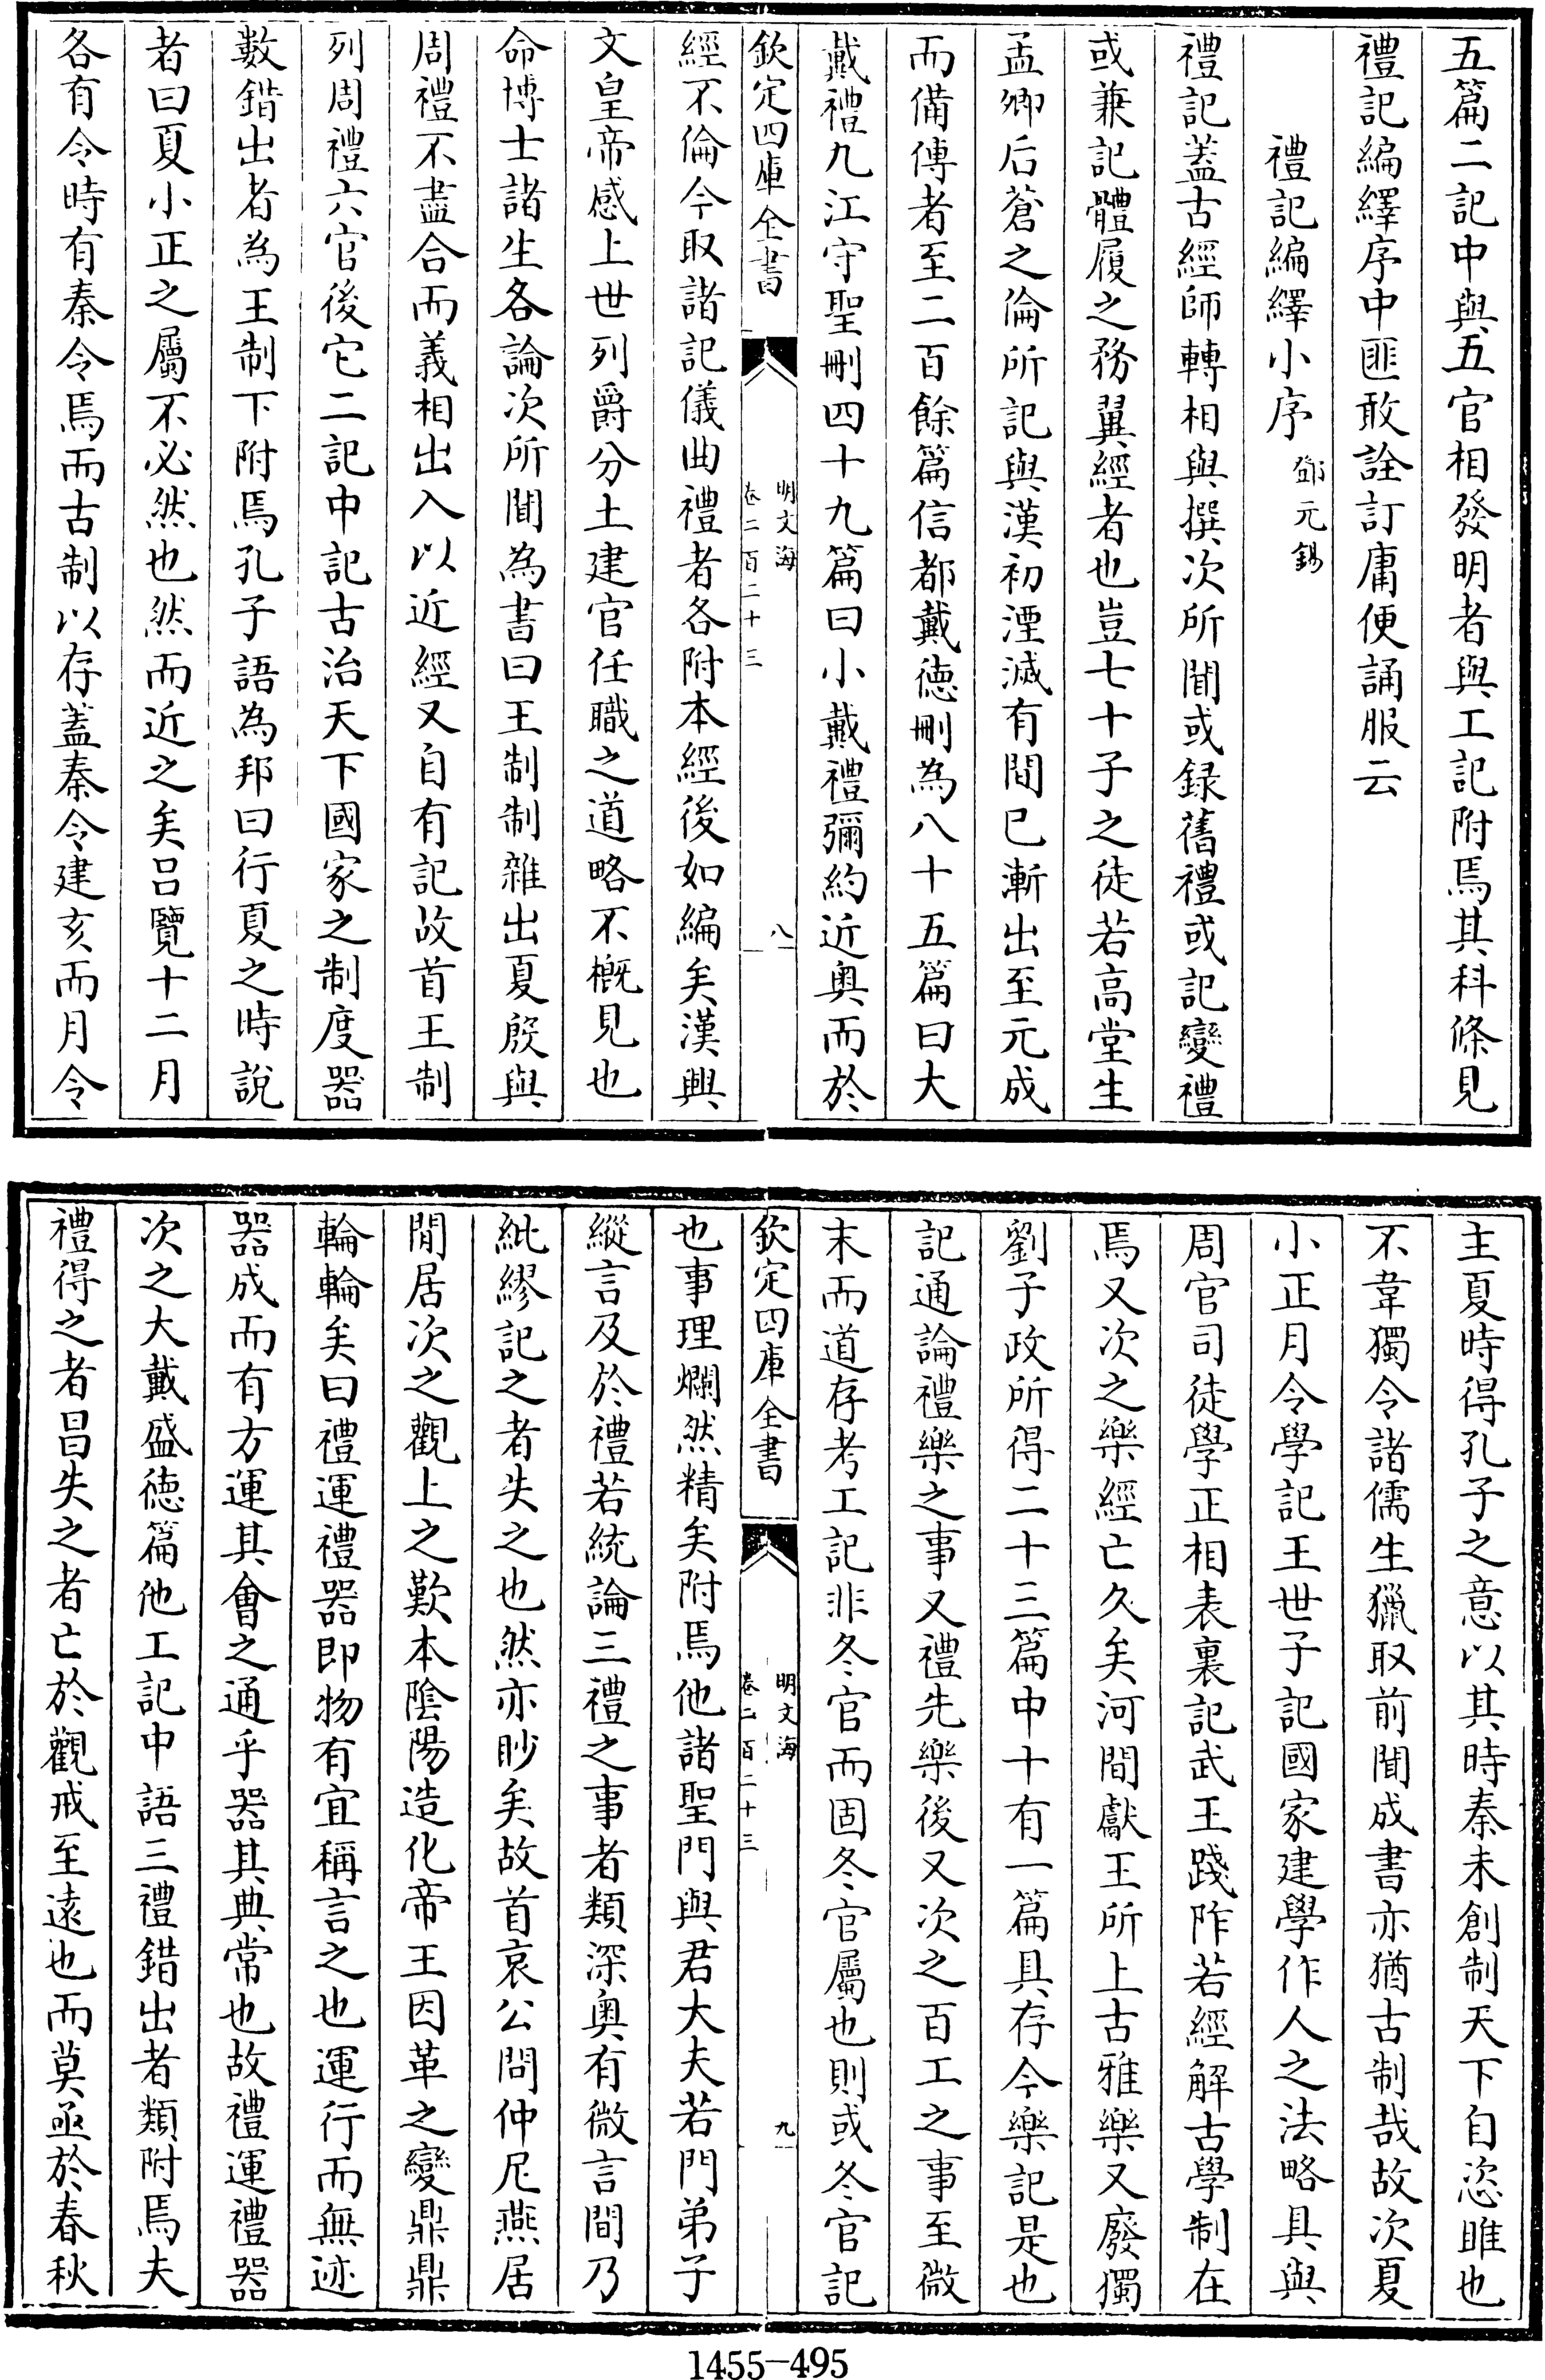 五篇二記中與五官相發明者與工記附焉其科條見
禮記編繹序中匪敢詮訂庸便誦服云
禮記編繹小序 鄧元錫
禮記蓋古經師轉相與撰次所聞或録舊禮或記變禮
或兼記體履之務翼經者也豈七十子之徒若高堂生
孟卿后蒼之倫所記與漢初湮滅有間已漸出至元成
而備傳者至二百餘篇信都戴德刪為八十五篇曰大
戴禮九江守聖刪四十九篇曰小戴禮彌約近奥而於
欽定四庫全書
明文海
卷二百二十三
八
經不倫今取諸記儀曲禮者各附本經後如編矣漢興
文皇帝感上世列爵分土建官任職之道略不概見也
命博士諸生各論次所聞為書曰王制制雜出夏殷與
周禮不盡合而義相出入以近經又自有記故首王制
列周禮六官後它二記中記古治天下國家之制度器
數錯出者為王制下附焉孔子語為邦曰行夏之時說
者曰夏小正之屬不必然也然而近之矣呂覽十二月
各有令時有秦令焉而古制以存蓋秦令建亥而月令
主夏時得孔子之意以其時秦未創制天下自恣睢也
不韋獨令諸儒生獵取前聞成書亦猶古制哉故次夏
小正月令學記王世子記國家建學作人之法略具與
周官司徒學正相表裏記武王踐阼若經解古學制在
焉又次之樂經亡久矣河間獻王所上古雅樂又廢獨
劉子政所得二十三篇中十有一篇具存今樂記是也
記通論禮樂之事又禮先樂後又次之百工之事至微
末而道存考工記非冬官而固冬官屬也則或冬官記
欽定四庫全書
明文海
卷二百二十三
九
也事理爛然精矣附焉他諸聖門與君大夫若門弟子
縱言及於禮若統論三禮之事者類深奥有微言間乃
紕繆記之者失之也然亦眇矣故首哀公問仲尼燕居
閒居次之觀上之歎本陰陽造化帝王因革之變鼎鼎
輪輪矣曰禮運禮器即物有宜稱言之也運行而無迹
器成而有方運其會之通乎器其典常也故禮運禮器
次之大戴盛德篇他工記中語三禮錯出者類附焉夫
禮得之者昌失之者亡於觀戒至遠也而莫亟於春秋
1455-495